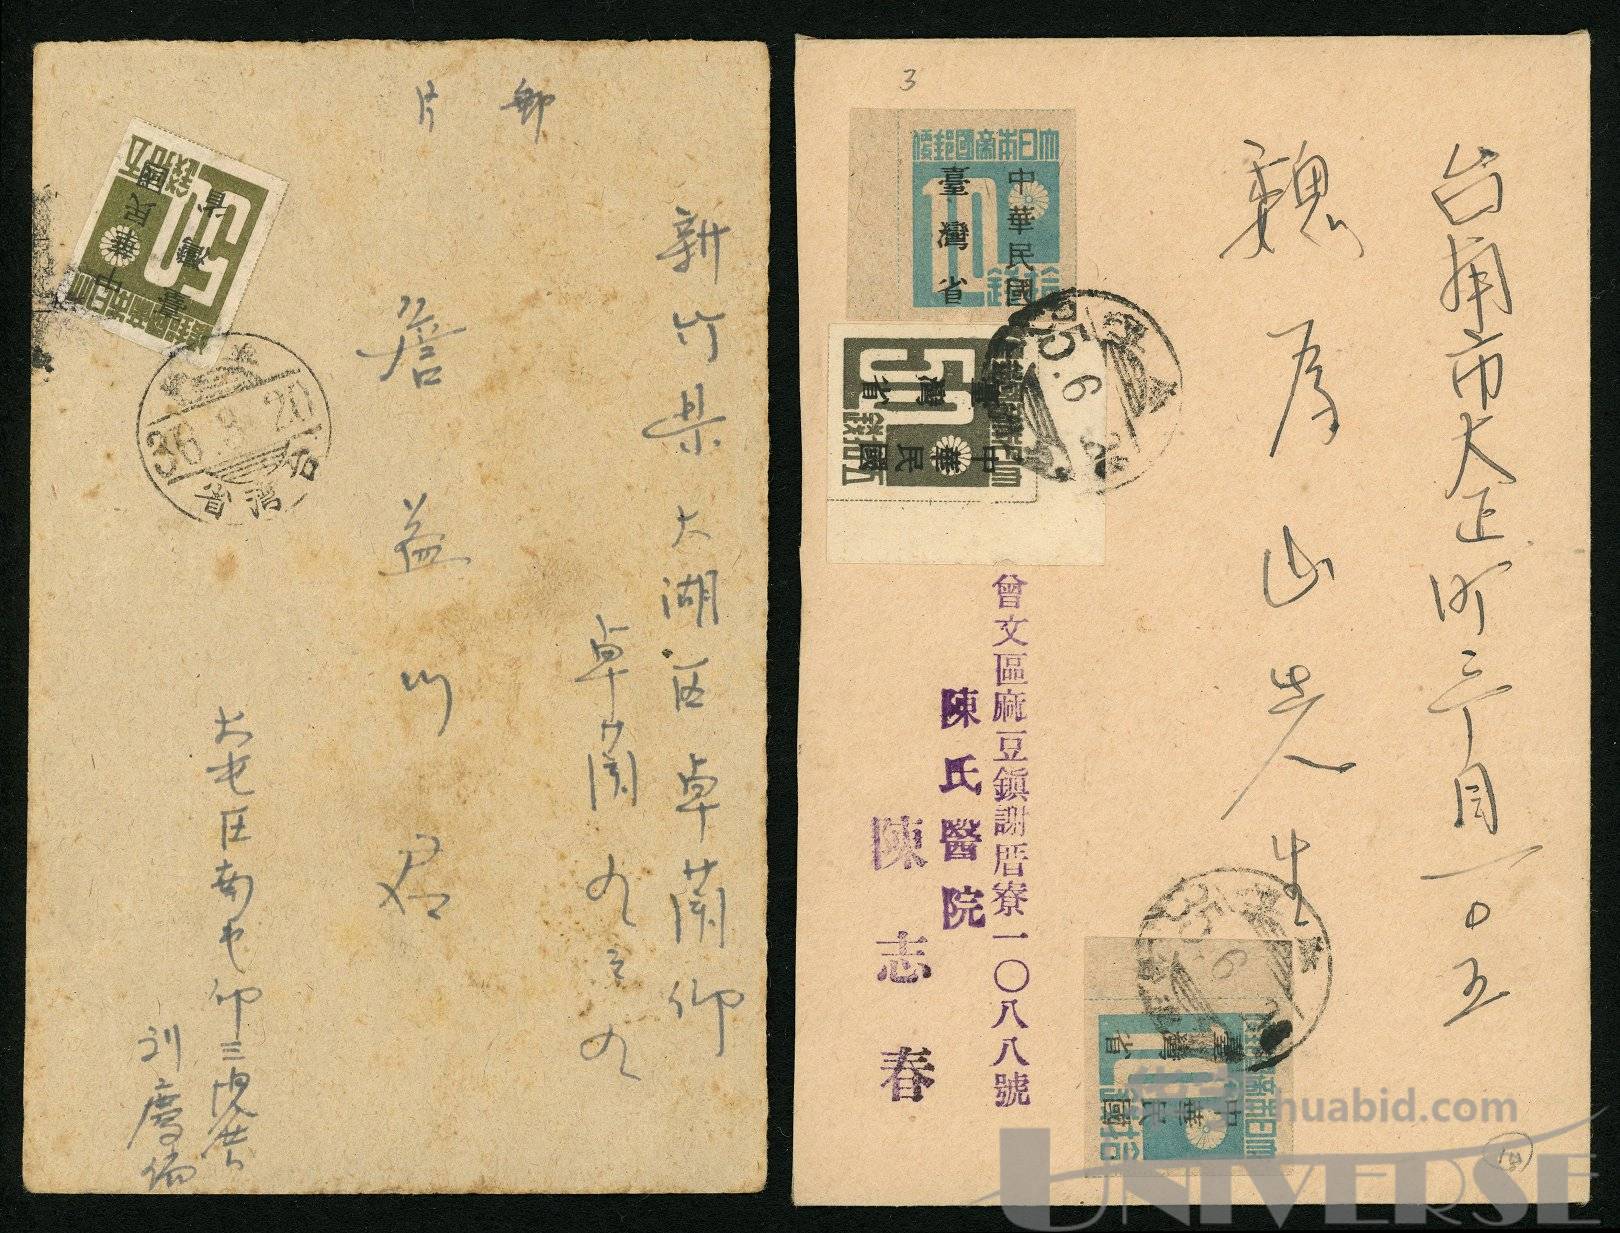 郵
片
新竹県大湖区卓蘭卿
卓蘭九三九
詹益川君
大屯区南屯
36.8.20
台湾省
五拾錢
50
大日本帝國郵便
中華民國
臺灣省
3
台南市大正町三丁目一〇五
魏彥山先生
大日本帝國郵便
10
拾錢
中華民國
臺灣省
大日本帝國郵便
50
五拾錢
中華民國
臺灣省
35.6
曾文區麻豆鎮謝厝寮一〇八八號
陳氏醫院
陳志春
大日本帝國郵便
10
中華民國
臺灣省
huabid.com
UNIVERSE